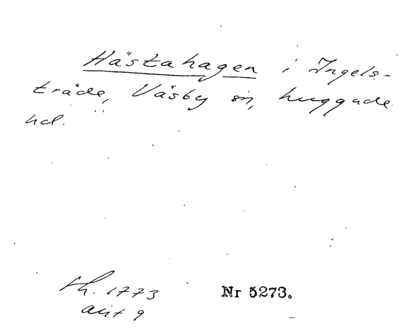 Hästahagen i Ingels-
träde, Väsby sn, huggude
hd.
sk. 1773
akt 9
Nr 5273.